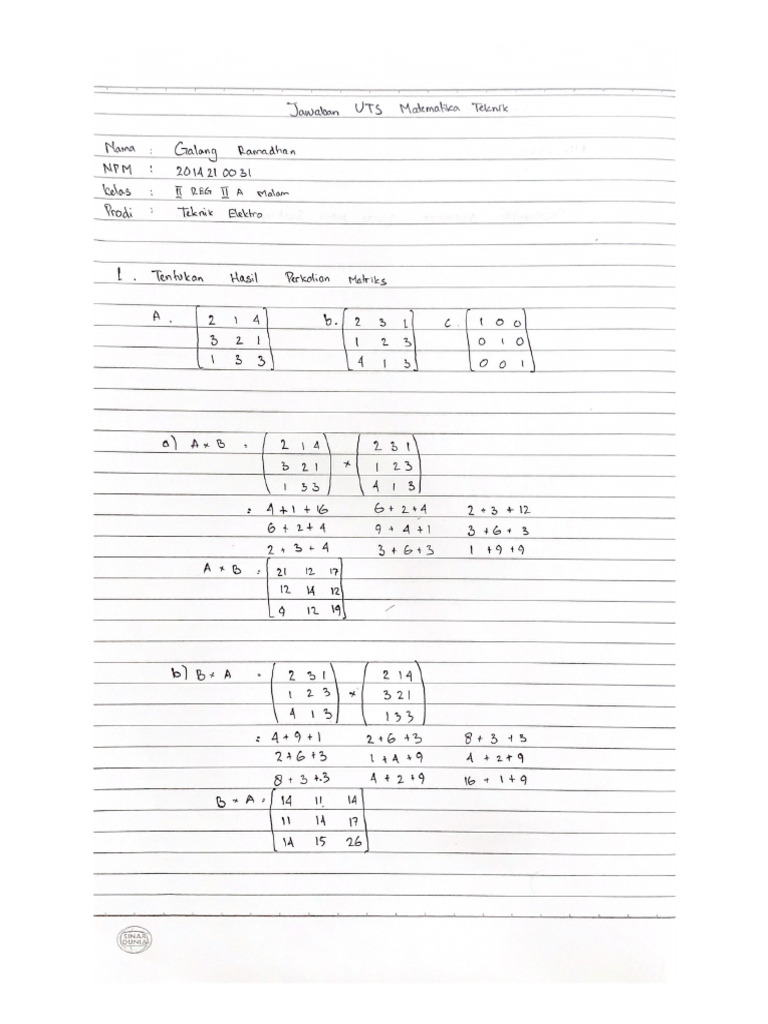 Jawaban UTS Matematika Teknik
Nama : Galang Ramadhan
NPM : 2014210031
Kelas : II REG II A Malam
Prodi : Teknik Elektro
1. Tentukan Hasil Perkalian Matriks
A. [2 1 4] b. [2 3 1] c. [1 0 0]
3 2 1 1 2 3 0 1 0
1 3 3 4 1 3 0 0 1
a) A × B = (2 1 4) × (2 3 1)
3 2 1 1 2 3
1 3 3 4 1 3
= 4+1+16 6+2+4 2+3+12
6+2+4 9+4+1 3+6+3
2+3+4 3+6+3 1+9+9
A × B = [21 12 17]
12 14 12
9 12 19
b) B × A = (2 3 1) × (2 1 4)
1 2 3 3 2 1
4 1 3 1 3 3
= 4+9+1 2+6+3 8+3+3
2+6+3 1+4+9 4+2+9
8+3+3 4+2+9 16+1+9
B × A = [14 11 14]
11 14 17
14 15 26
SINAR
DUNIA